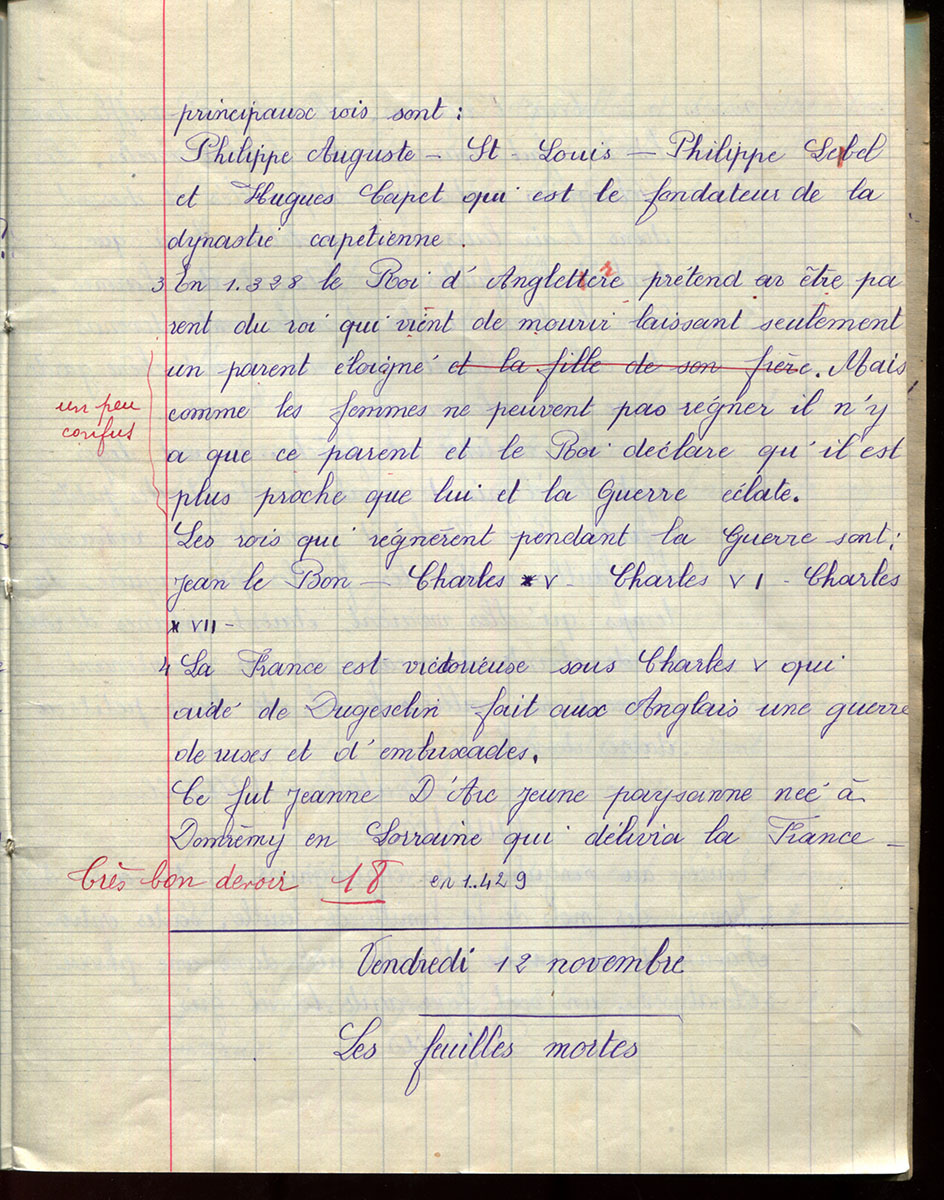 principaux rois sont :
Philippe Auguste – St Louis – Philippe Lebel
et Hugues Capet qui est le fondateur de la
dynastie capétienne.
3 En 1.328 le Roi d'Angleterre prétend ar être pa
rent du roi qui vient de mourir laissant seulement
un parent éloigné et la fille de son frère. Mais
un peu
confus
comme les femmes ne peuvent pas régner il n'y
a que ce parent et le Roi déclare qu'il est
plus proche que lui et la Guerre éclate.
Les rois qui régnèrent pendant la Guerre sont :
Jean le Bon – Charles V – Charles VI – Charles
VII –
4 La France est victorieuse sous Charles V qui
aidé de Dugesclin fait aux Anglais une guerre
de ruses et d'embuxades.
Ce fut Jeanne D'Arc jeune paysanne neé à
Domrémy en Lorraine qui délivra la France –
très bon devoir 18 en 1.429
Vendredi 12 novembre
Les feuilles mortes